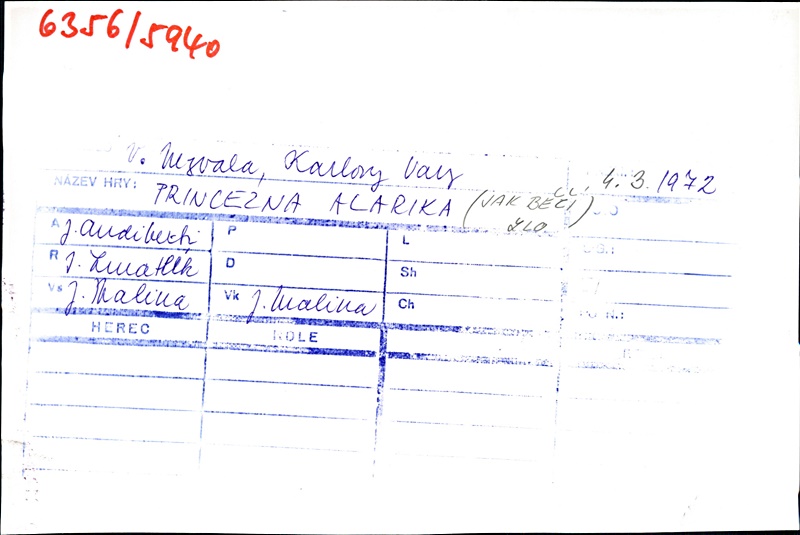 6356/5940
V. Nezvala, Karlovy Vary
4. 3. 1972
NÁZEV HRY: PRINCEZNA ALARIKA (JAK BĚŽÍ ZLO)
A J. Audiberti P L
R J. Zmatlík D Sh
Vs J. Malina Vk J. Malina Ch
HEREC ROLE